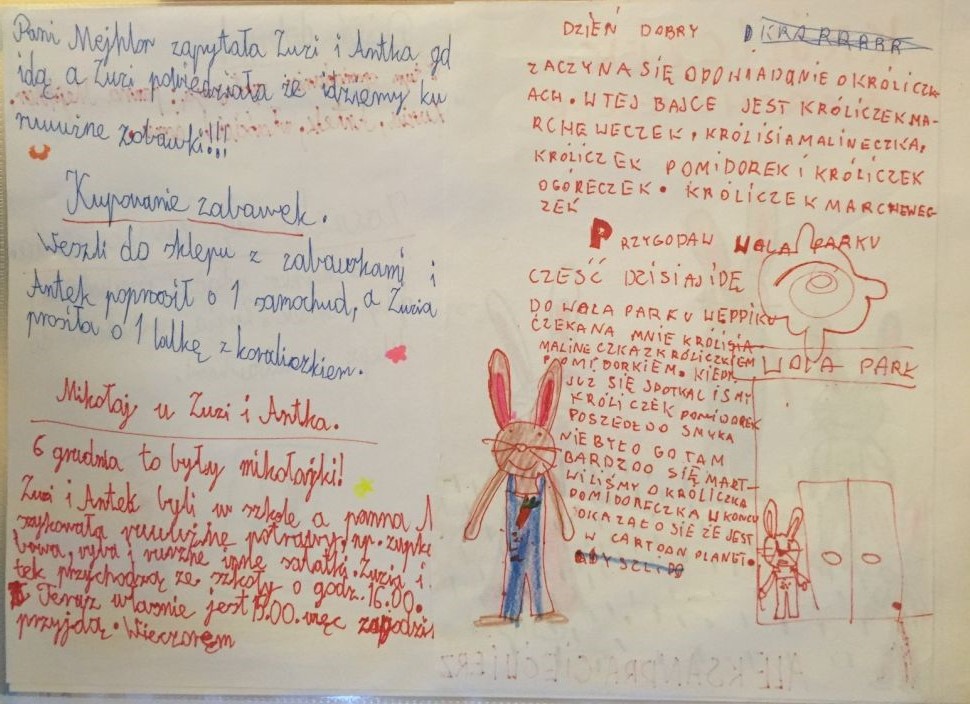 Pani Mejhlor zapytała Zuzi i Antka gd
idą a Zuzi powiedziała że idziemy ku
ruuużne zabawki!!!
Kupowanie zabawek.
Weszli do sklepu z zabawkami i
Antek poprosił o 1 samochud, a Zuzia
prosiła o 1 lalkę z koraliczkiem.
Mikołaj u Zuzi i Antka.
6 grudnia to byłyy mikołajki!
Zuzi i Antek byli w szkole a panna
szykowała ruuużne potrawy np. zupkę
bowa, ryba i ruszne inne sałatki. Zuzia i
tek przychodzą ze szkoły o godz. 16.00.
Teraz własnie jest 15.00. więc
przyjdą. Wieczorem
DZIEŃ DOBRY
ZACZYNA SIĘ OPOWIADANIE O KRÓLICZK
ACH. W TEJ BAJCE JEST KRÓLICZEK MA-
RCHEWECZEK, KRÓLISIA MALINECZKA,
KRÓLICZEK POMIDOREK I KRÓLICZEK
OGÓRECZEK. KRÓLICZEK MARCHEWEC
ZEK
PRZYGODA W WOLA PARKU
CZEŚĆ DZISIAJ IDĘ
DO WOLA PARKU W EPPIKU
CZEKA NA MNIE KRÓLISIA
MALINECZKA Z KRÓLICZKIEM
POMIDORKIEM. KIEDY
JUŻ SIĘ SPOTKALIŚMY
KRÓLICZEK POMIDOREK
POSZEDŁ DO SMYKA
NIE BYŁO GO TAM
BARDZOO SIĘ MART-
WILIŚMY O KRÓLICZKA
POMIDORECZKA W KOŃCU
OKAZAŁO SIĘ ŻE JEST
W CARTOON PLANET.
WOLA PARK
ALEKSANDRA